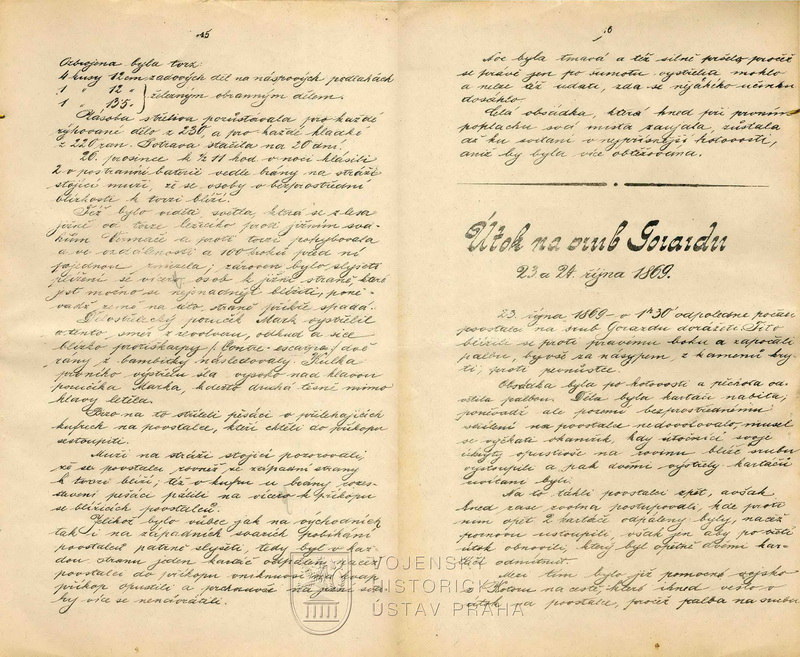 15
Ozbrojena byla tvrz:
4 kusy 12 cm zadových děl na násypových podlahách
1 " 12 " } železným obranným dělem.
1 " 135 "
Zásoba střeliva pozůstávala pro každé
rýhované dělo z 230, a pro každé hladké
z 220 ran. Potrava stačila na 20 dní.
20. prosince k ½ 11 hod v noci hlásili
2 v postranní baterii vedle brány na stráži
stojící muži, že se osoby v bezprostřední
blízkosti k tvrzi blíží.
Též bylo viděti světla, která se z lesa
jižně od tvrze ležícího proti jižním sva-
hům a proti tvrzi pohybovala
a ve vzdálenosti a 100 kroků před ní
pojednou zmizela; zároveň bylo slyšeti
plížení se více osob k jižní straně, kte
jest možno se nejsnadněji blížiti, poně-
vadž země na této straně příkře spadá.
Dělostřelecký poručík Mark vystřelil
v tento směr z revolveru, odkud a sice
blízko protiskarpy (Contre-escarpe) dvě
rány z bambitky následovaly. Kulka
prvního výstřelu šla vysoko nad hlavou
poručíka Marka, kdežto druhá těsně mimo
hlavy letěla.
Brzo na to stříleli pěšáci v přiléhajících
kufrech na povstalce, kteří chtěli do příkopu
sestoupiti.
Muži na stráži stojící pozorovali,
že se povstalci rovněž se západní strany
k tvrzi blíží; též v kufru u brány roze-
stavení pěšáci pálili na vícero k příkopu
se blížících povstalců.
Jelikož bylo vůbec jak na východních
tak i na západních svazích pobíhání
povstalců patrně slyšeti, tedy byl v kaž-
dou stranu jeden kartáč
povstalci do příkopu vniknuvší
příkop opustili a prchnuvše na jižní svahy
více se nenavrátili.
Noc byla tmavá a též silně pršelo, pročež
se právě jen po sluchu vystřeliti mohlo
a nelze též udati, zda se nějakého účinku
dosáhlo.
Celá obsádka, která hned při prvním
poplachu svá místa zaujala, zůstala
až ku svítání v nejpřísnější hotovosti,
aniž by byla více obtěžována.
Útok na srub Gorardu
23 a 24. října 1869.
23. října 1869 o 1h 30' odpoledne počali
povstalci na srub Gorardu dorážeti. Tito
blížili se proti pravému boku a započali
palbu, byvše za násypem z kamenů kry-
ti, proti pevnůstce.
Obsádka byla po hotovosti a pěchota od-
větila palbou. Děla byla kartáči nabita;
poněvadž ale pozemí bezprostřednímu
střílení na povstalce nedovolovalo, musel
se vyčkati okamžik, kdy útočníci svoje
úkryty opustivše na rovinu blíže srubu
vystoupili a pak dvěmi výstřely kartáčů
uvítáni byli.
Na to táhli povstalci zpět, avšak
hned zase rovnou postupovali, kde proti
nim opět 2 kartáče odpáleny byly, načež
poznovu ustoupili, však jen aby po třetí
útok obnovili, který byl opětně dvěmi kar-
táči odmítnut.
Mezi tím bylo již pomocné vojsko
z Kotoru na cestě, které ihned vešlo v
útok na povstalce, pročež palba na srubu
VOJENSKÝ
HISTORICKÝ
ÚSTAV PRAHA